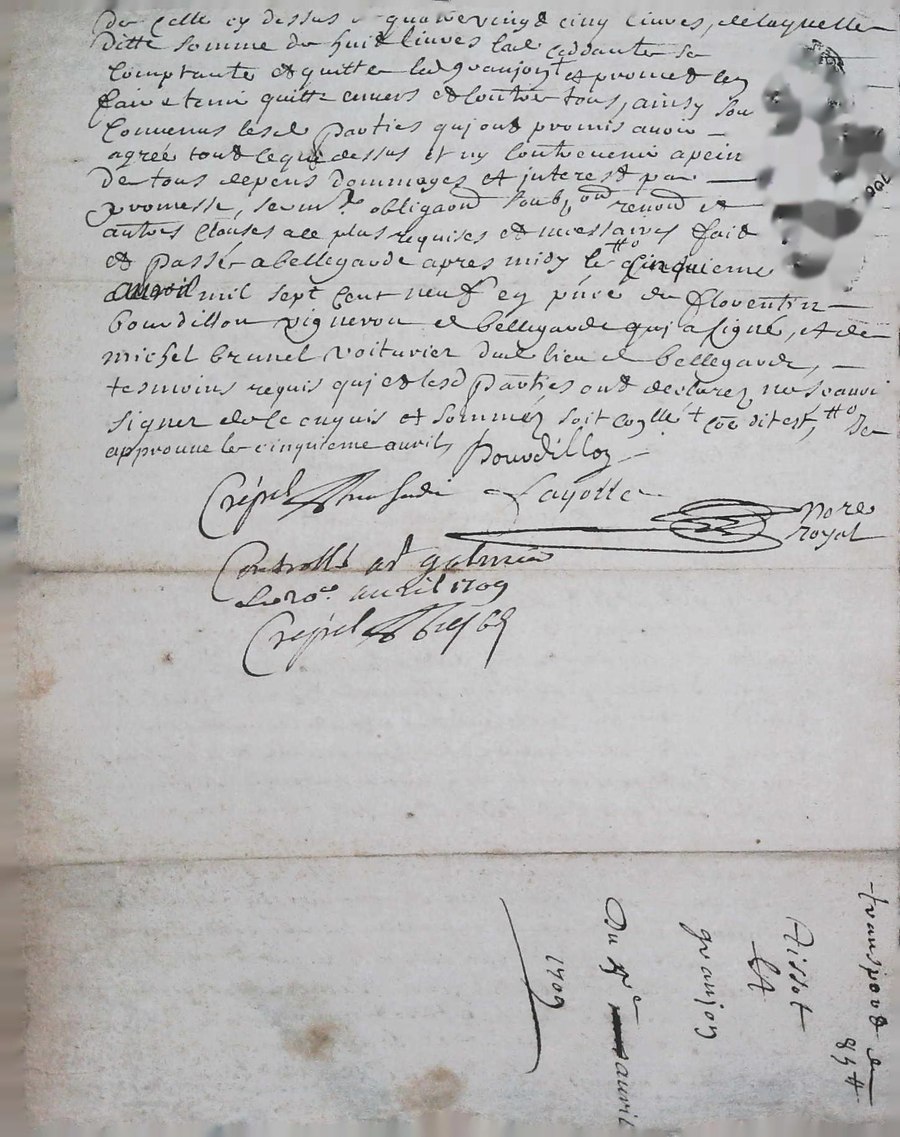 de celle cy dessus de quatrevingt cinq livres, de laquelle
ditte somme de huit livres lad. ceddante se
comptante et quitte led granjon et promet len
faire tenir quitte envers et contre tous, ainsy sont
convenus lesd parties qui ont promis avoir
agreé tout ce que dessus et ny contrevenir a peine
de tous depens dommages et interest par
promesse, serm.t obligaond soubzon renond et
autres clauses a ce plus requises et necessaires fait
et passé a bellegarde apres midy le cinquieme
avril mil sept cent neuf en pnce de florentin
bourdillon vigneron de bellegarde qui a signé, et de
michel brunel voiturier dud lieu de bellegarde,
tesmoins requis qui et lesd parties ont declarez ne scavoir
signer de ce enquis et sommez soit conllé t coe dit est, #o de
approuve le cinquieme avril
bourdillon
Crépet
Layolle
nore
royal
Controllé a st galmier
le 10e. avril 1709
Crépet
transport de
85#
Tissot
et
granjon
Du 5me avril
1709